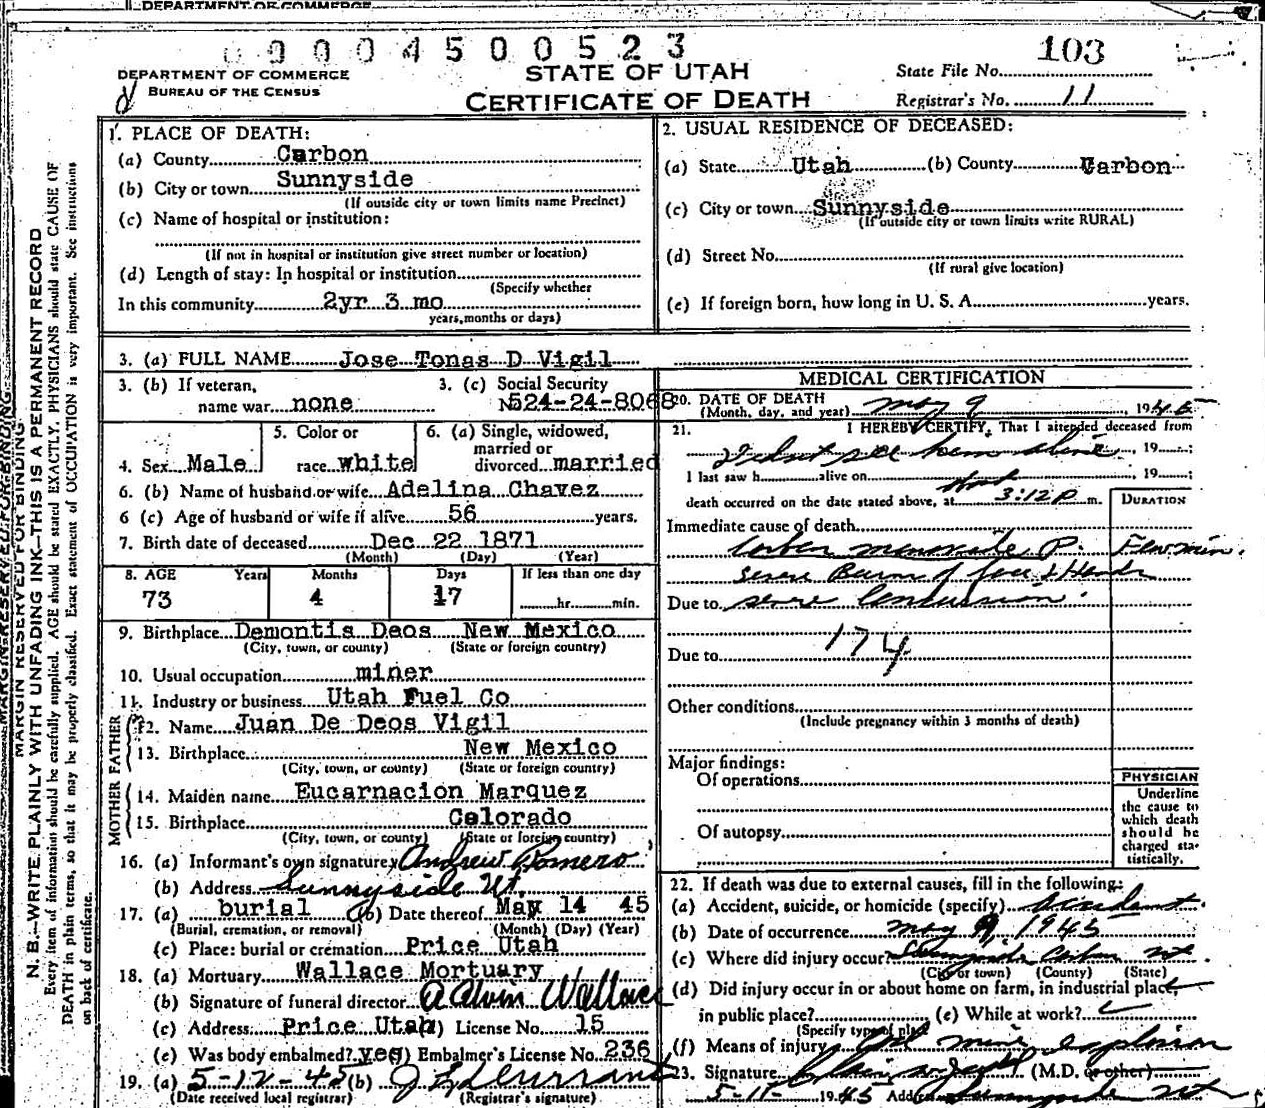 DEPARTMENT OF COMMERCE
0 0 0 0 4 5 0 0 5 2 3
103
DEPARTMENT OF COMMERCE
BUREAU OF THE CENSUS
STATE OF UTAH
CERTIFICATE OF DEATH
State File No.
Registrar's No. 11
MARGIN RESERVED FOR BINDING
N. B.—WRITE PLAINLY WITH UNFADING INK—THIS IS A PERMANENT RECORD
Every item of information should be carefully supplied. AGE should be stated EXACTLY. PHYSICIANS should state CAUSE OF
DEATH in plain terms, so that it may be properly classified. Exact statement of OCCUPATION is very important. See instructions
on back of certificate.
1. PLACE OF DEATH:
(a) County Carbon
(b) City or town Sunnyside
(If outside city or town limits name Precinct)
(c) Name of hospital or institution:
(If not in hospital or institution give street number or location)
(d) Length of stay: In hospital or institution
(Specify whether
In this community 2yr 3 mo
years, months or days)
2. USUAL RESIDENCE OF DECEASED:
(a) State Utah (b) County Carbon
(c) City or town Sunnyside
(If outside city or town limits write RURAL)
(d) Street No.
(If rural give location)
(e) If foreign born, how long in U. S. A. years.
3. (a) FULL NAME Jose Tonas D Vigil
3. (b) If veteran, name war none
3. (c) Social Security No. 524-24-8068
4. Sex Male
5. Color or race white
6. (a) Single, widowed, married or divorced married
6. (b) Name of husband or wife Adelina Chavez
6 (c) Age of husband or wife if alive 56 years.
7. Birth date of deceased Dec 22 1871
(Month) (Day) (Year)
8. AGE Years Months Days If less than one day
73 4 17 hr. min.
9. Birthplace Demontis Deos New Mexico
(City, town, or county) (State or foreign country)
10. Usual occupation miner
11. Industry or business Utah Fuel Co
FATHER
12. Name Juan De Deos Vigil
13. Birthplace New Mexico
(City, town, or county) (State or foreign country)
MOTHER
14. Maiden name Eucarnacion Marquez
15. Birthplace Colorado
(City, town, or county) (State or foreign country)
16. (a) Informant's own signature Andrew Romero
(b) Address Sunnyside Ut.
17. (a) burial (b) Date thereof May 14 45
(Burial, cremation, or removal) (Month) (Day) (Year)
(c) Place: burial or cremation Price Utah
18. (a) Mortuary Wallace Mortuary
(b) Signature of funeral director A Alvin Wallace
(c) Address Price Utah License No. 15
(e) Was body embalmed? yes Embalmer's License No. 236
19. (a) 5-12-45 (b)
(Date received local registrar) (Registrar's signature)
MEDICAL CERTIFICATION
20. DATE OF DEATH
(Month, day, and year) May 9, 1945
21. I HEREBY CERTIFY, That I attended deceased from
Didnt see him alive, 19 ;
I last saw h alive on , 19 ;
death occurred on the date stated above, at 3:12 P m. DURATION
Immediate cause of death
Carbon monoxide P. Few min.
severe Burns of face & Hands
Due to severe Concussion.
174
Due to
Other conditions
(Include pregnancy within 3 months of death)
Major findings:
Of operations
Of autopsy
PHYSICIAN
Underline
the cause to
which death
should be
charged sta-
tistically.
22. If death was due to external causes, fill in the following:
(a) Accident, suicide, or homicide (specify) accident
(b) Date of occurrence May 9, 1945
(c) Where did injury occur Sunnyside Carbon Ut
(City or town) (County) (State)
(d) Did injury occur in or about home on farm, in industrial place,
in public place? (e) While at work?
(Specify type of place)
(f) Means of injury mine explosion
23. Signature (M.D. or other)
5-11- 1945 Address Sunnyside Ut